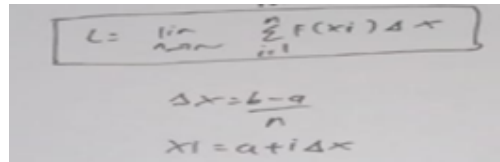 L = lim n→∞ n Σ i=1 F(xi) Δx
Δx = b-a / n
xi = a + i Δx